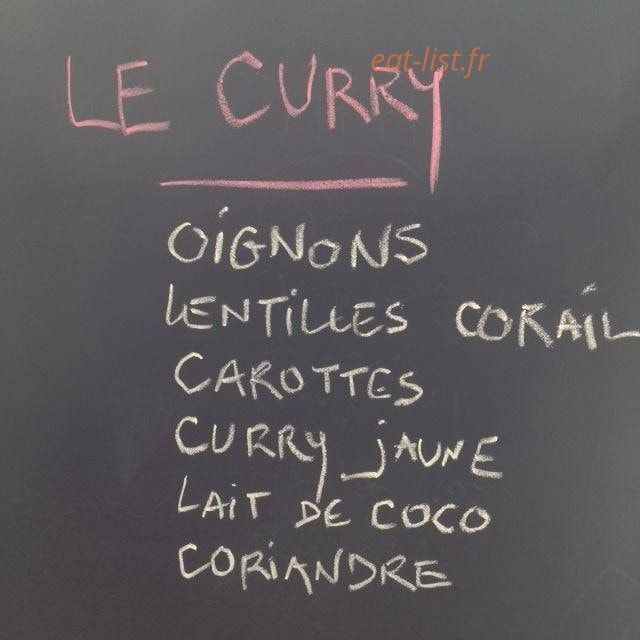 eat-list.fr
LE CURRY
OiGNONS
LENTiLLES CORAiL
CAROTTES
CURRY jAUNE
LAiT DE COCO
CORiANDRE